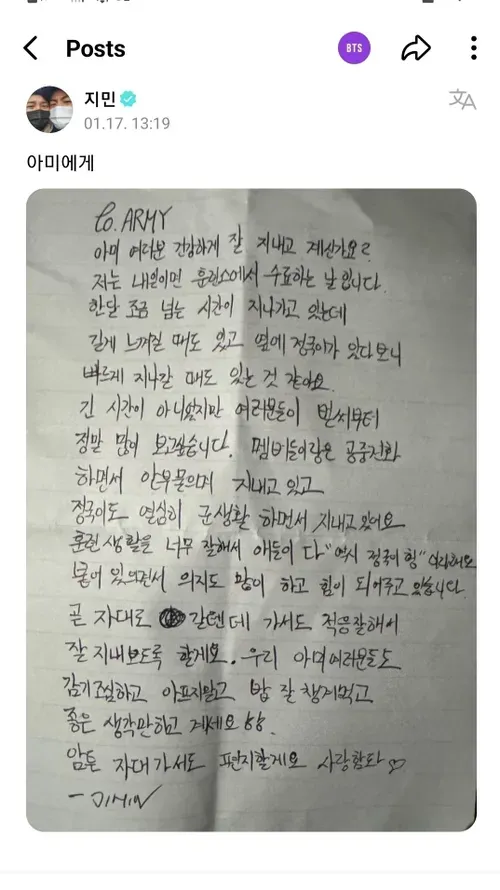 Posts
BTS
지민
01.17. 13:19
아미에게
To. ARMY
아미 여러분 건강하게 잘 지내고 계신가요?
저는 내일이면 훈련소에서 수료하는 날입니다.
한달 조금 넘는 시간이 지나가고 있는데
길게 느껴질 때도 있고 옆에 정국이가 있다보니
빠르게 지나갈 때도 있는 것 같아요.
긴 시간이 아니었지만 여러분들이 벌써부터
정말 많이 보고싶습니다. 멤버들이랑은 공중전화
하면서 안부물으며 지내고 있고
정국이도 열심히 군생활 하면서 지내고있어요
훈련 생활을 너무 잘해서 애들이 다 "역시 정국이 형" 이라해요
붙어 있으면서 의지도 많이 하고 힘이 되어주고 있습니다.
곧 자대로 갈텐데 가서도 적응잘해서
잘 지내보도록 할게요. 우리 아미여러분들도
감기조심하고 아프지말고 밥 잘 챙겨먹고
좋은 생각만하고 계세요
암튼 자대가서도 편지할게요 사랑합니다 ♡
- JIMIN